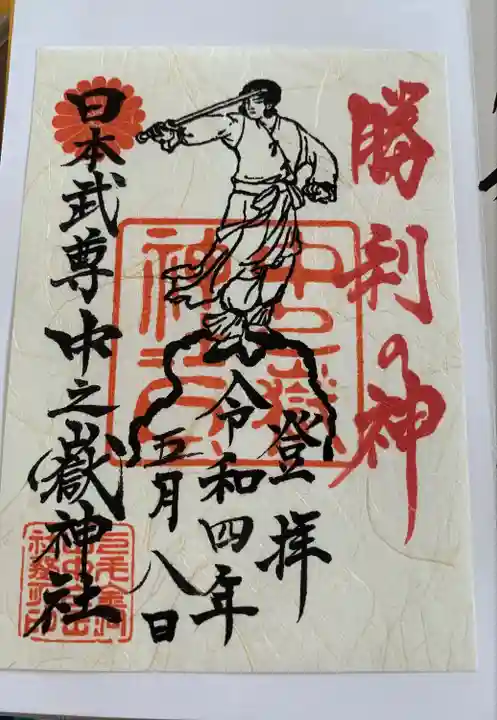 勝利の神
登拝
令和四年
五月八日
日本武尊中之嶽神社
中之嶽神社